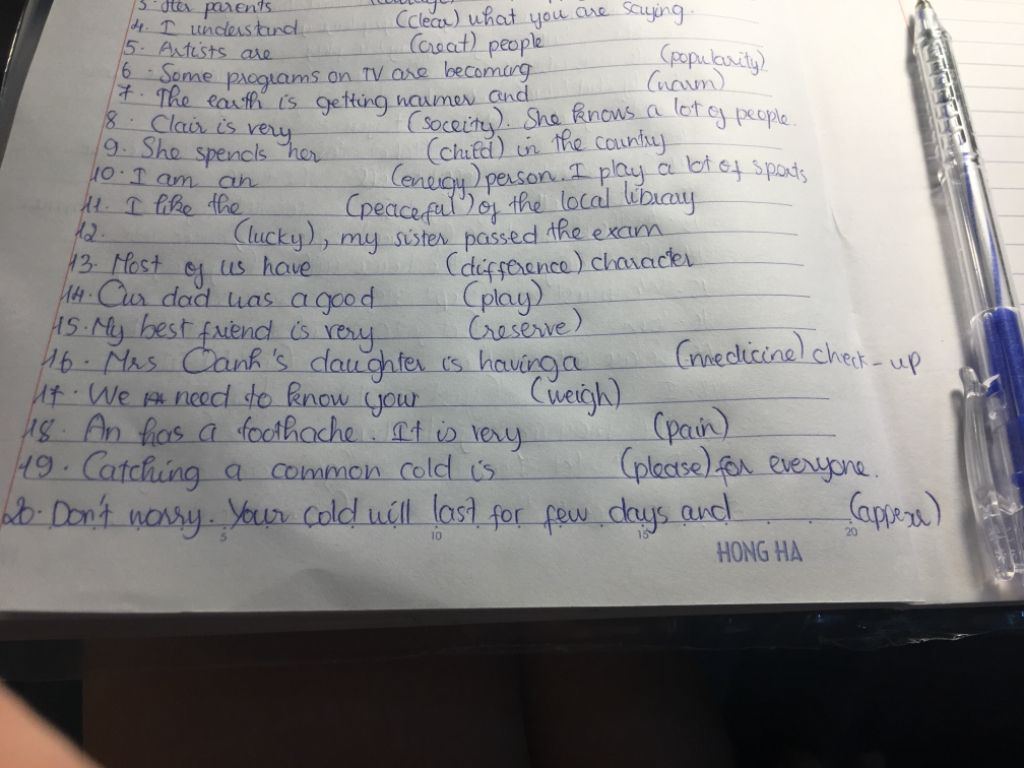 3. Her parents
4. I understand (clear) what you are saying.
5. Artists are (creat) people
6. Some programs on TV are becoming (popularity)
7. The earth is getting warmer and (warm)
8. Clair is very (soceity). She knows a lot of people.
9. She spends her (child) in the country
10. I am an (energy) person. I play a lot of sports
11. I like the (peaceful) of the local libray
12. (lucky), my sister passed the exam
13. Most of us have (difference) character
14. Our dad was a good (play)
15. My best friend is very (reserve)
16. Mrs Oanh's daughter is having a (medicine) check-up
17. We need to know your (weigh)
18. An has a toothache. It is very (pain)
19. Catching a common cold is (please) for everyone.
20. Don't worry. Your cold will last for few days and
5 10 15 20
HONG HA